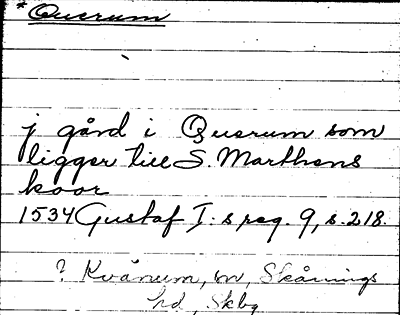 * Querum
j gård i Querum som
ligger till S. Marthens
koor
1534 Gustaf I: s reg. 9, s. 218.
? Kvånum, sn, Skånings
hd, Skbg